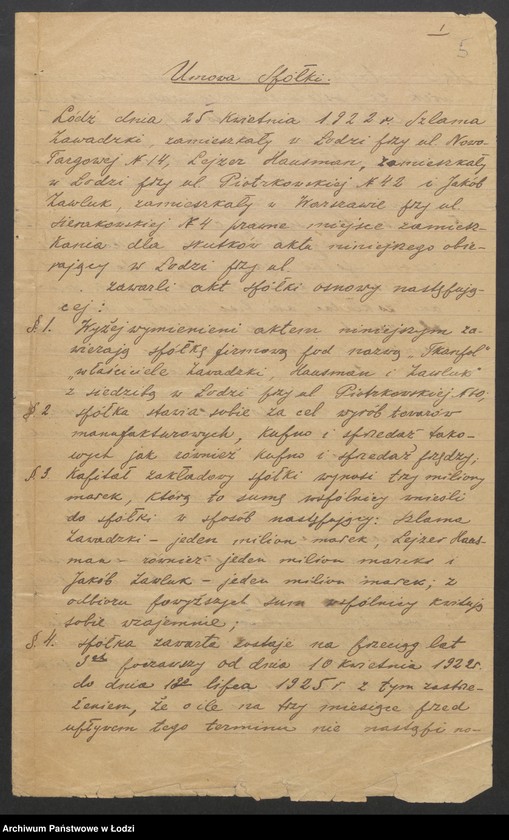 1
5
Umowa Spółki.
Łódź dnia 25 kwietnia 1922 r. Szlama
Zawadzki, zamieszkały w Łodzi przy ul. Nowo-
Targowej N 14, Lejzer Hausman, zamieszkały
w Łodzi przy ul. Piotrkowskiej N 42 i Jakób
Zawluk, zamieszkały w Warszawie przy ul.
Sierakowskiej N 4 prawne miejsce zamiesz-
kania dla skutków aktu niniejszego obie-
rający w Łodzi przy ul.
zawarli akt spółki osnowy następują-
cej:
§ 1. Wyżej wymienieni aktem niniejszym za-
wierają spółkę firmową pod nazwą „Tkanpol"
"właściciele Zawadzki, Hausman i Zawluk"
z siedzibą w Łodzi przy ul Piotrkowskiej N 60;
§ 2 Spółka stawia sobie za cel wyrób towarów
manufakturowych, kupno i sprzedaż tako-
wych jak również kupno i sprzedaż przędzy;
§ 3 Kapitał zakładowy spółki wynosi trzy miliony
marek, którą to sumę wspólnicy wnieśli
do spółki w sposób następujący: Szlama
Zawadzki – jeden milion marek, Lejzer Haus-
man – również jeden milion marek i
Jakób Zawluk – jeden milion marek; z
odbioru powyższych sum wspólnicy kwitują
sobie wzajemnie;
§ 4. Spółka zawarta zostaje na przeciąg lat
3ch począwszy od dnia 10 kwietnia 1922 r.
do dnia lipca 1925 r z tym zastrze-
żeniem, że o ile na trzy miesiące przed
upływem tego terminu nie nastąpi no-
Archiwum Państwowe w Łodzi